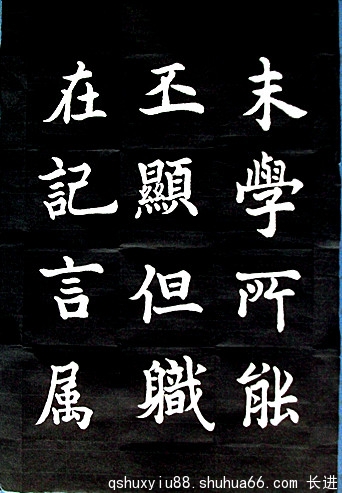 末學所能
丕顯但職
在記言属
qshuxyiu88.shuhua66.com 长进